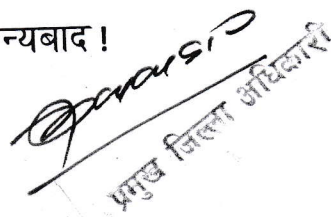 न्यबाद !
प्रमुख जिल्ला अधिकारी